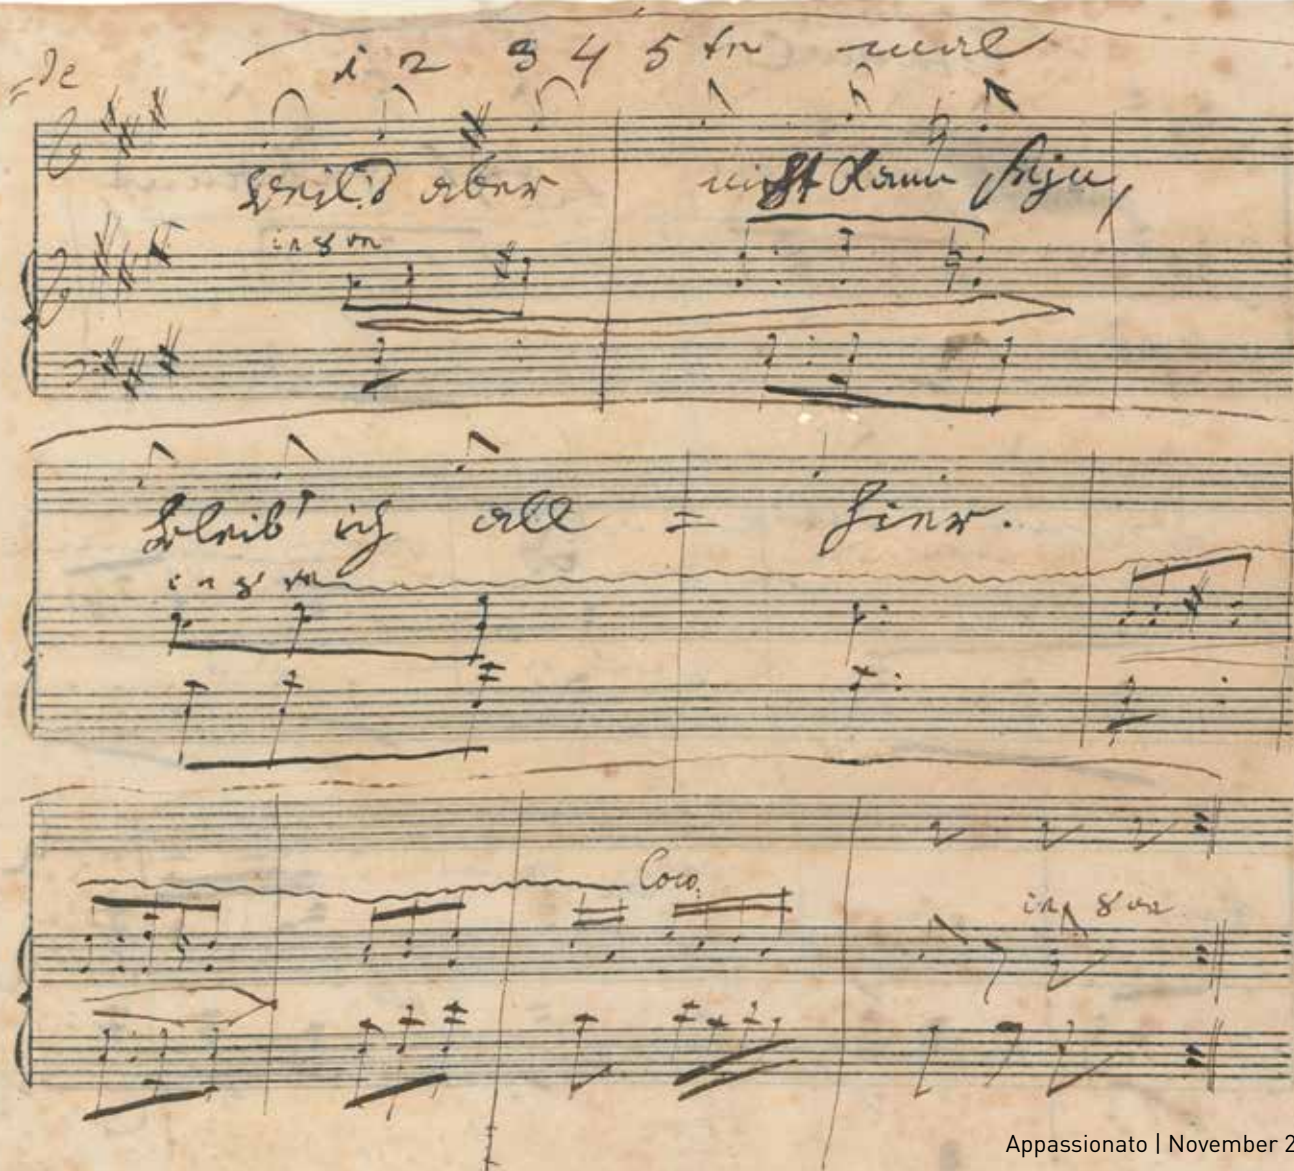 1 2 3 4 5te mal
weil's aber nicht kann sein,
in 8va
bleib' ich all =
hier.
in 8va
Loco.
in 8va
Appassionato | November 2